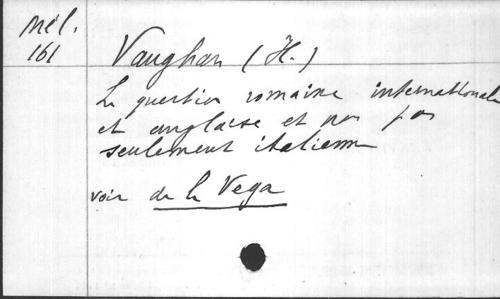 Mél.
161
Vaughan (H.)
La question romaine internationale
et anglaise et non pas
seulement italienne
voir de la Vega